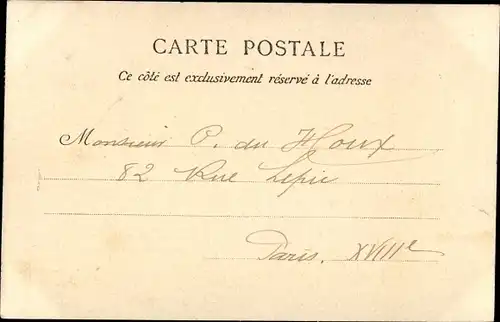 CARTE POSTALE
Ce côté est exclusivement réservé à l'adresse
Monsieur P. du Houx
82 Rue Lepic
Paris. XVIIIe